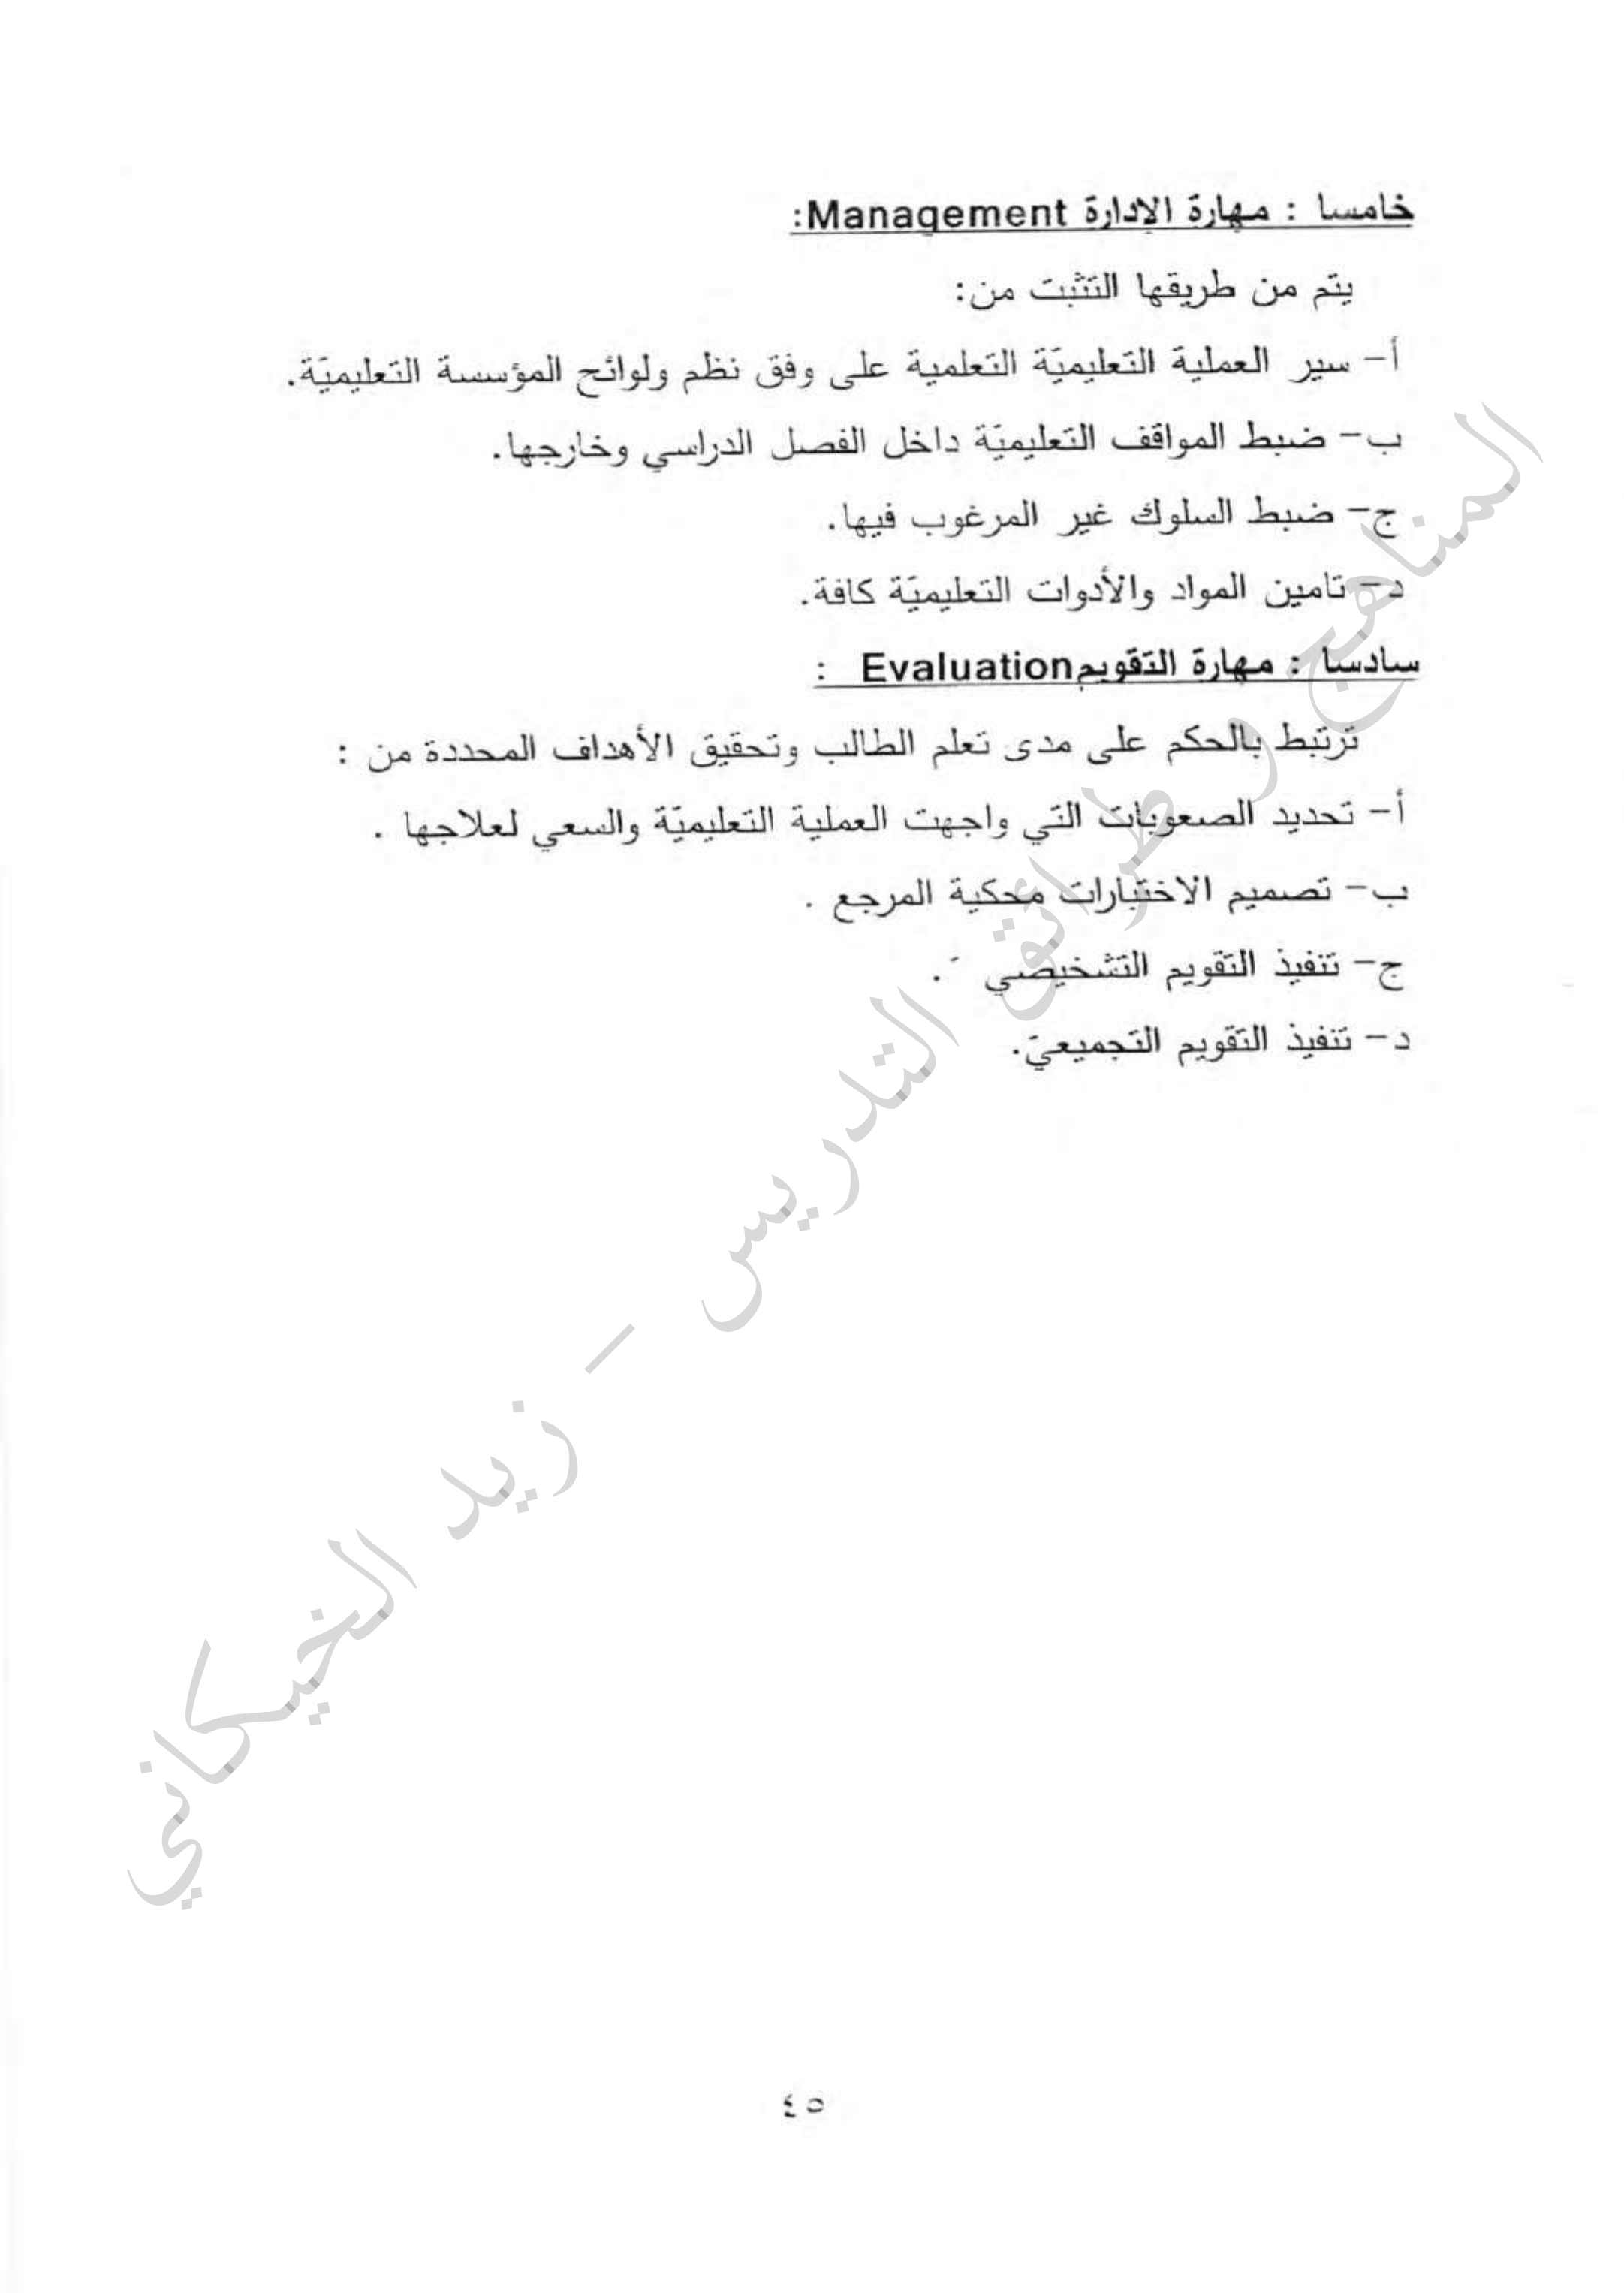 خامسا : مهارة الإدارة Management:
يتم من طريقها التثبت من:
أ- سير العملية التعليميّة التعلمية على وفق نظم ولوائح المؤسسة التعليميّة.
ب- ضبط المواقف التعليميّة داخل الفصل الدراسي وخارجها.
ج- ضبط السلوك غير المرغوب فيها.
د- تامين المواد والأدوات التعليميّة كافة.
سادسا : مهارة التقويم Evaluation :
ترتبط بالحكم على مدى تعلم الطالب وتحقيق الأهداف المحددة من :
أ- تحديد الصعوبات التي واجهت العملية التعليميّة والسعي لعلاجها .
ب- تصميم الاختبارات محكية المرجع .
ج- تنفيذ التقويم التشخيصي .
د- تنفيذ التقويم التجميعيّ.
المناهج و طرائق التدريس - زيد الخيكاني
٤٥